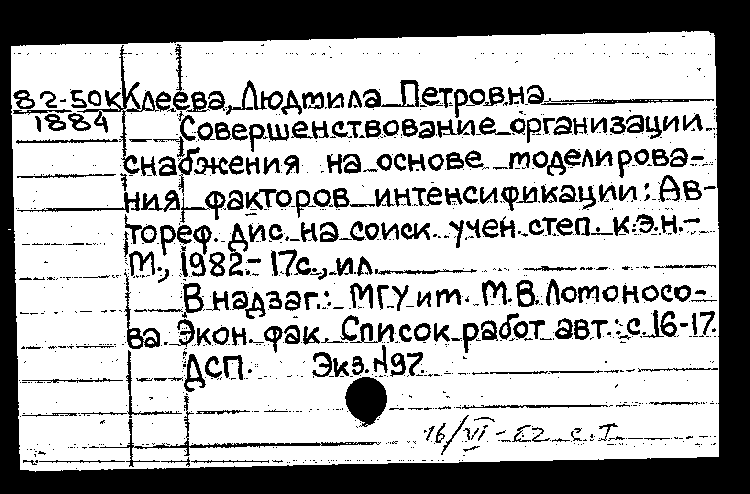 82-50к Клеева, Людмила Петровна
1884 Совершенствование организации
снабжения на основе моделирова-
ния факторов интенсификации: Ав-
тореф. дис. на соиск. учен. степ. к.э.н.-
М., 1982.- 17с., ил.
В надзаг.: МГУ им. М.В. Ломоносо-
ва. Экон. фак. Список работ авт.: с. 16-17.
ДСП. Экз. №97
16/VI-82 с.т.